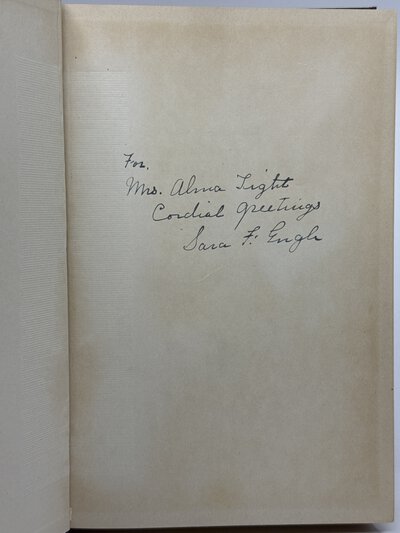 For.
Mrs. Alma Tight
Cordial greetings
Sara F. Engle